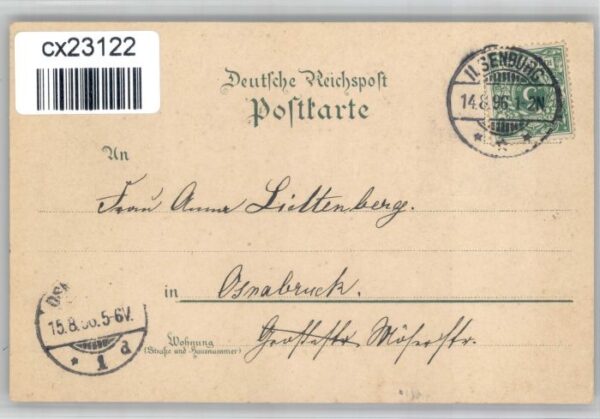 cx23122
Deutsche Reichspost
Postkarte
ILSENBURG
14.8.96.1-2N.
5
An
Frau Anna Lichtenberg.
in Osnabruck.
Wohnung
(Straße und Hausnummer)
Großestr. Möserstr.
15.8.96.5-6V.
1 d